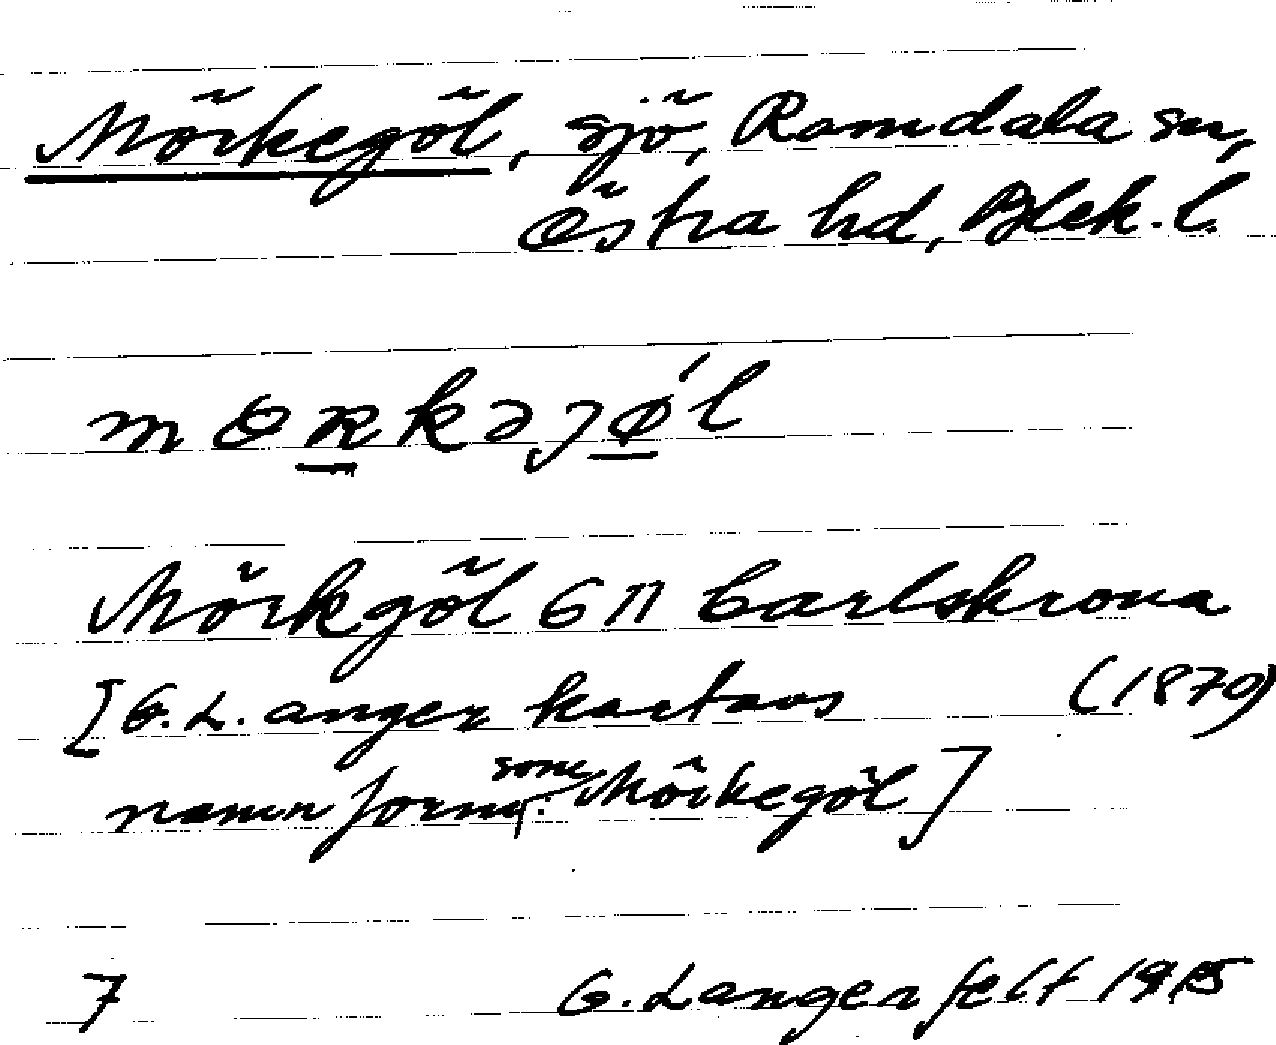 Mörkegöl, sjö, Ramdala sn,
Östra hd, Blek. l.
mɵʀkəjǿl
Mörkgöl GII Carlskrona
[G. L. anger kartans (1870)
namnform som: Mörkegöl]
7 G. Langenfelt 1915